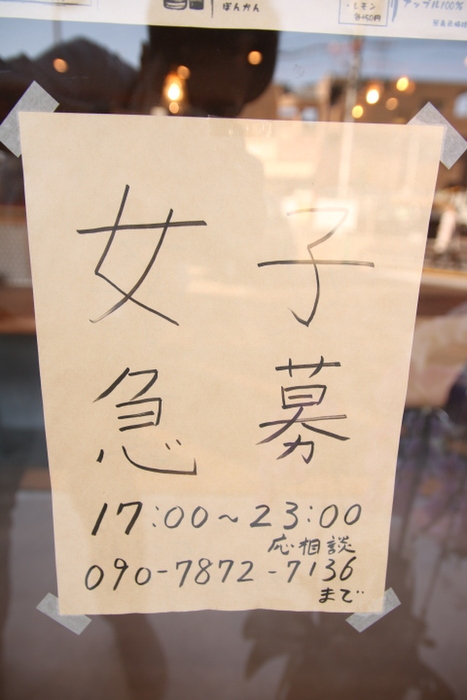 ぽんかん
レモン
各450円
アップル100%
女子
急募
17:00~23:00
応相談
090-7872-7136
まで